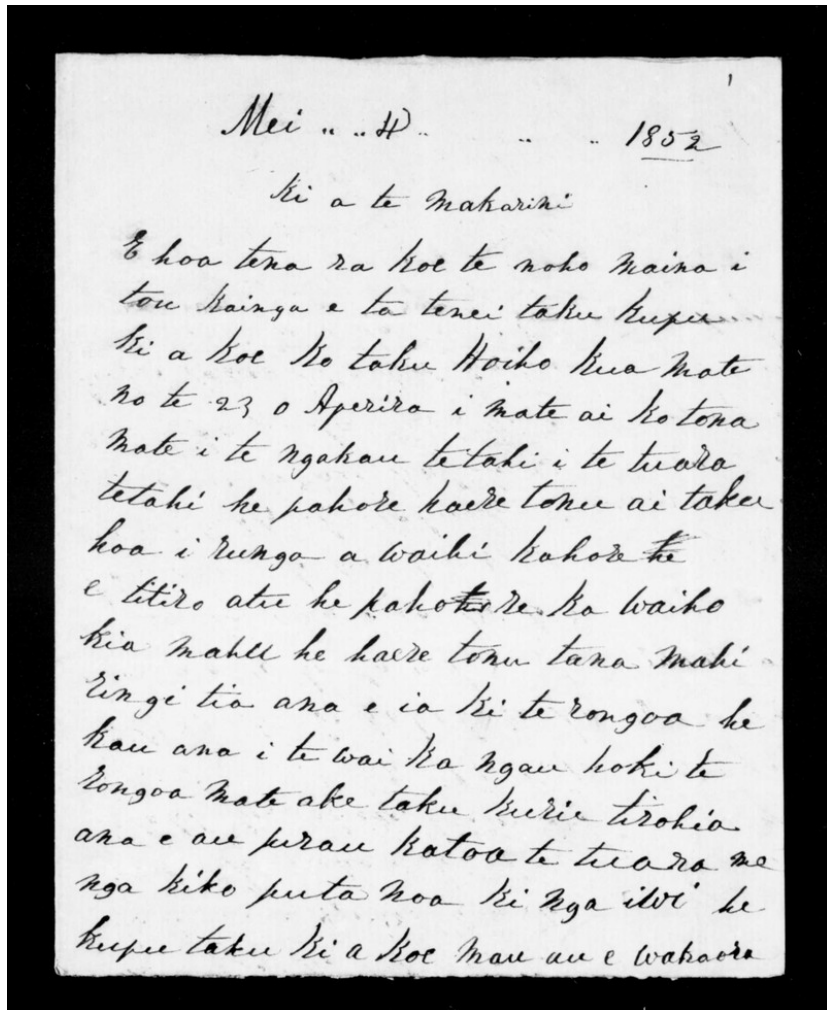 1
Mei " " 4 " " " 1852
Ki a te Makarini
E hoa tena ra koe te noho maina i
tou kainga e ta tenei taku kupu
ki a koe ko taku Hoiho kua mate
no te 23 o Aperira i mate ai ko tona
mate i te ngakau tetahi i te tuara
tetahi he pahore haere tonu ai taku
hoa i runga a waihi kahore he
e titiro atu he pahore ka waiho
kia mahu he haere tonu tana mahi
ringi tia ana e ia ki te rongoa he
kau ana i te wai ka ngau hoki te
rongoa mate ake taku kurii tirohia
ana e au purau katoa te tuara me
nga kiko puta noa ki nga iwi he
kupu taku ki a koe mau au e wakaora